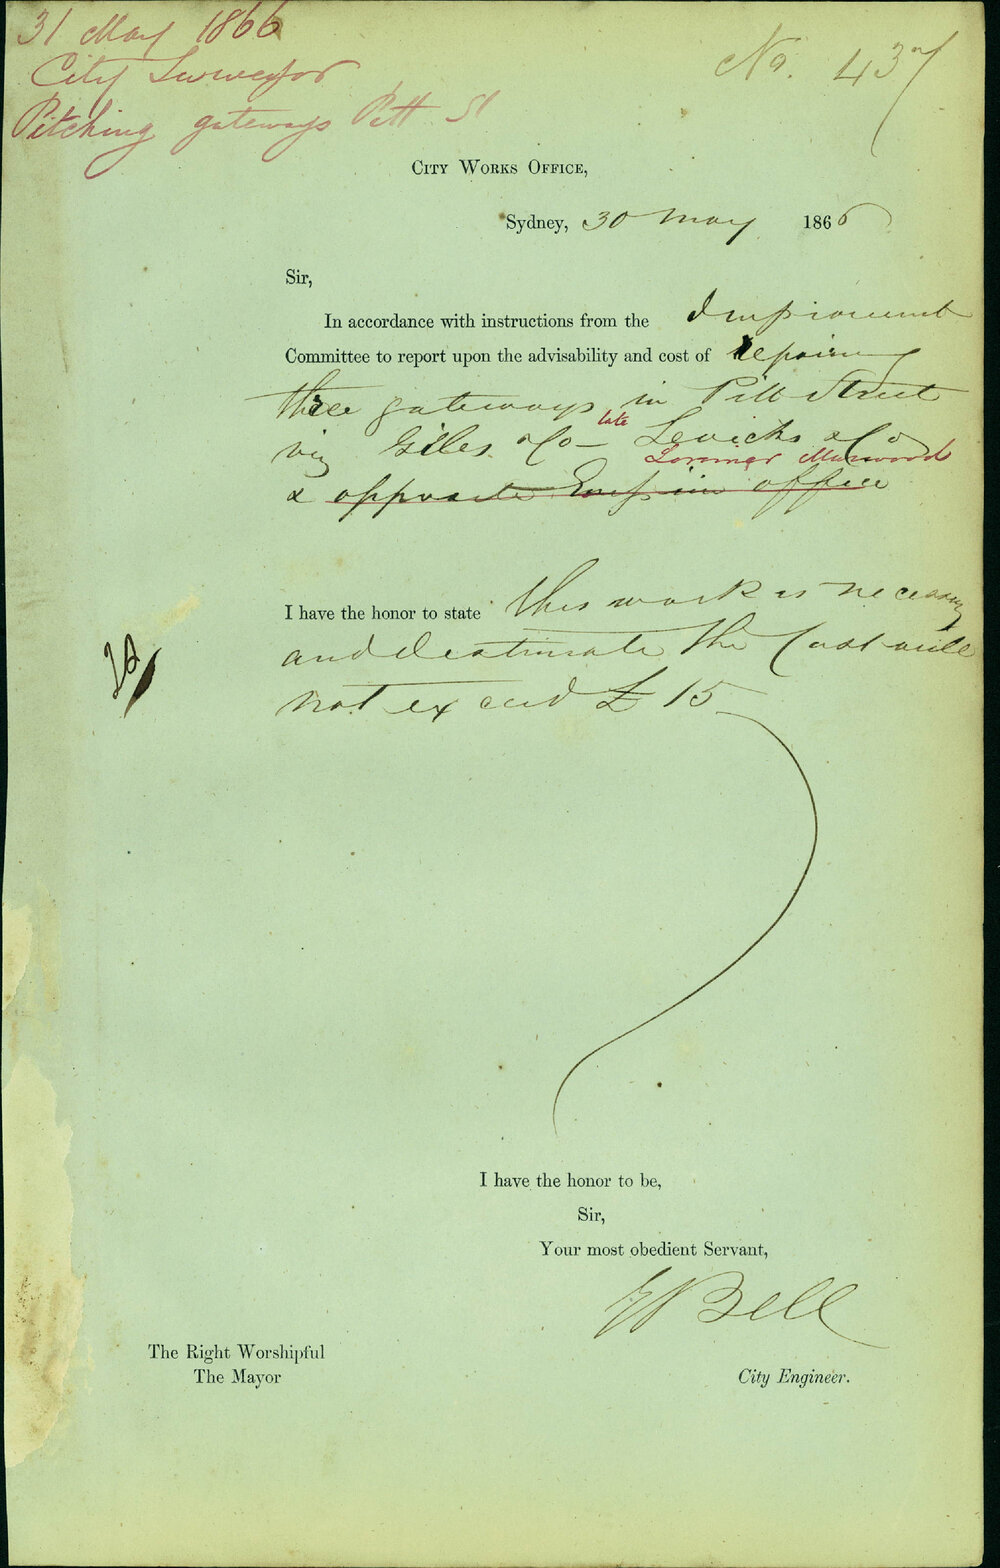 31 May 1866
City Surveyor
Pitching gateways Pitt St
No. 437
City Works Office,
Sydney, 30 May 1866
Sir,
In accordance with instructions from the Improvement
Committee to report upon the advisability and cost of repairing
three gateways in Pitt Street
viz Giles & Co – late Levicks & Co
Lorimer Marwood
& opposite Empire office
I have the honor to state this work is necessary
and I estimate the Cost will
not exceed £ 15
I have the honor to be,
Sir,
Your most obedient Servant,
E Bell
The Right Worshipful
The Mayor
City Engineer.